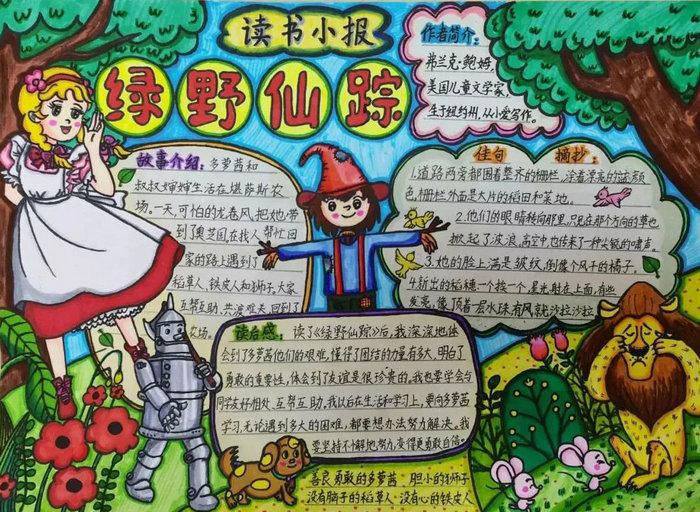 读书小报
绿野仙踪
作者简介:
弗兰克·鲍姆,
美国儿童文学家,
生于纽约州,从小爱写作。
故事介绍:多萝茜和
叔叔婶婶生活在堪萨斯农
场。一天,可怕的龙卷风把她带
到了奥芝国在找人帮忙回
家的路上遇到了
稻草人、铁皮人和狮子,大家
互帮互助、共渡难关回到了
农场。
佳句 摘抄:
1.道路两旁都围着整齐的栅栏,涂着漂亮的蓝颜
色,栅栏外面是大片的稻田和菜地。
2.他们的眼睛转向那里,只见在那个方向的草也
掀起了波浪,高空中也传来了一种尖锐的啸声。
3.他的脸上满是皱纹,倒像个风干的橘子。
4.新出的稻穗一个挨一个,星光射在上面,有些
发亮,像顶着一层水珠,有风就沙拉沙拉
读后感:读了《绿野仙踪》后,我深深地体
会到了多萝茜他们的艰难,懂得了团结的力量有多大,明白了
勇敢的重要性,体会到了友谊是很珍贵的。我也要学会与
同学友好相处、互帮互助,我以后在生活和学习上,要向多萝茜
学习,无论遇到多大的困难,都要想办法努力解决。我
要坚持不懈地努力,变得更勇敢自信。
善良勇敢的多萝茜·胆小的狮子
没有脑子的稻草人·没有心的铁皮人